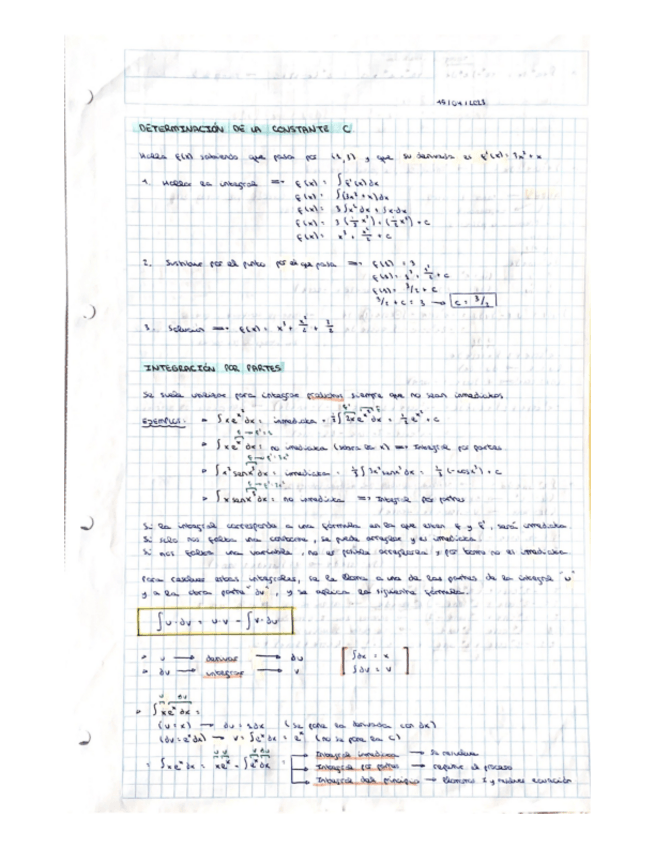 DETERMINACIÓN DE LA CONSTANTE C
Halla f(x) sabiendo que pasa por (1,3) y que su derivada es f'(x) = 3x² + x
1. Hallar la integral ⟹ f(x) = ∫f'(x)dx
f(x) = ∫(3x² + x)dx
f(x) = 3∫x²dx + ∫xdx
f(x) = 3(1/3 x³) + (1/2 x²) + C
f(x) = x³ + x²/2 + C
2. Sustituir por el punto por el que pasa ⟹ f(1) = 3
f(1) = 1³ + 1²/2 + C
f(1) = 3/2 + C
3/2 + C = 3 → C = 3/2
3. Solución ⟹ f(x) = x³ + x²/2 + 3/2
INTEGRACIÓN POR PARTES
Se suele utilizar para integrar productos siempre que no sean inmediatos
EJEMPLOS:
∫xe^x² dx = inmediata = 1/2∫2xe^x² dx = 1/2 e^x² + C
no inmediata ⟹ Integral por partes
∫x²senx³dx = inmediata = 1/3∫3x²senx³dx = 1/3(-cosx³) + C
no inmediata ⟹ Integral por partes
Si la integral corresponde a una fórmula en la que estén f y f', será inmediata.
Si solo nos falta una constante, se puede arreglar y es inmediata.
Si nos falta una variable, no es posible arreglarla y por tanto no es inmediata
Para resolver estas integrales, se le llama a una de las partes de la integral "u"
y a la otra parte "dv", y se aplica la siguiente fórmula.
∫u·dv = u·v - ∫v·du
u → derivar → du [∫dx = x
dv → integrar → v ∫dv = v]
u dv
∫xe^x dx =
(u = x) → du = 1dx (se pone la derivada con dx)
(dv = e^x dx) → v = ∫e^x dx = e^x (no se pone la C)
= ∫xe^x dx = xe^x - ∫e^x dx = → Integral inmediata → Se resuelve
→ Integral por partes → repetir el proceso
→ Integral del principio → llamamos I y resolver ecuación